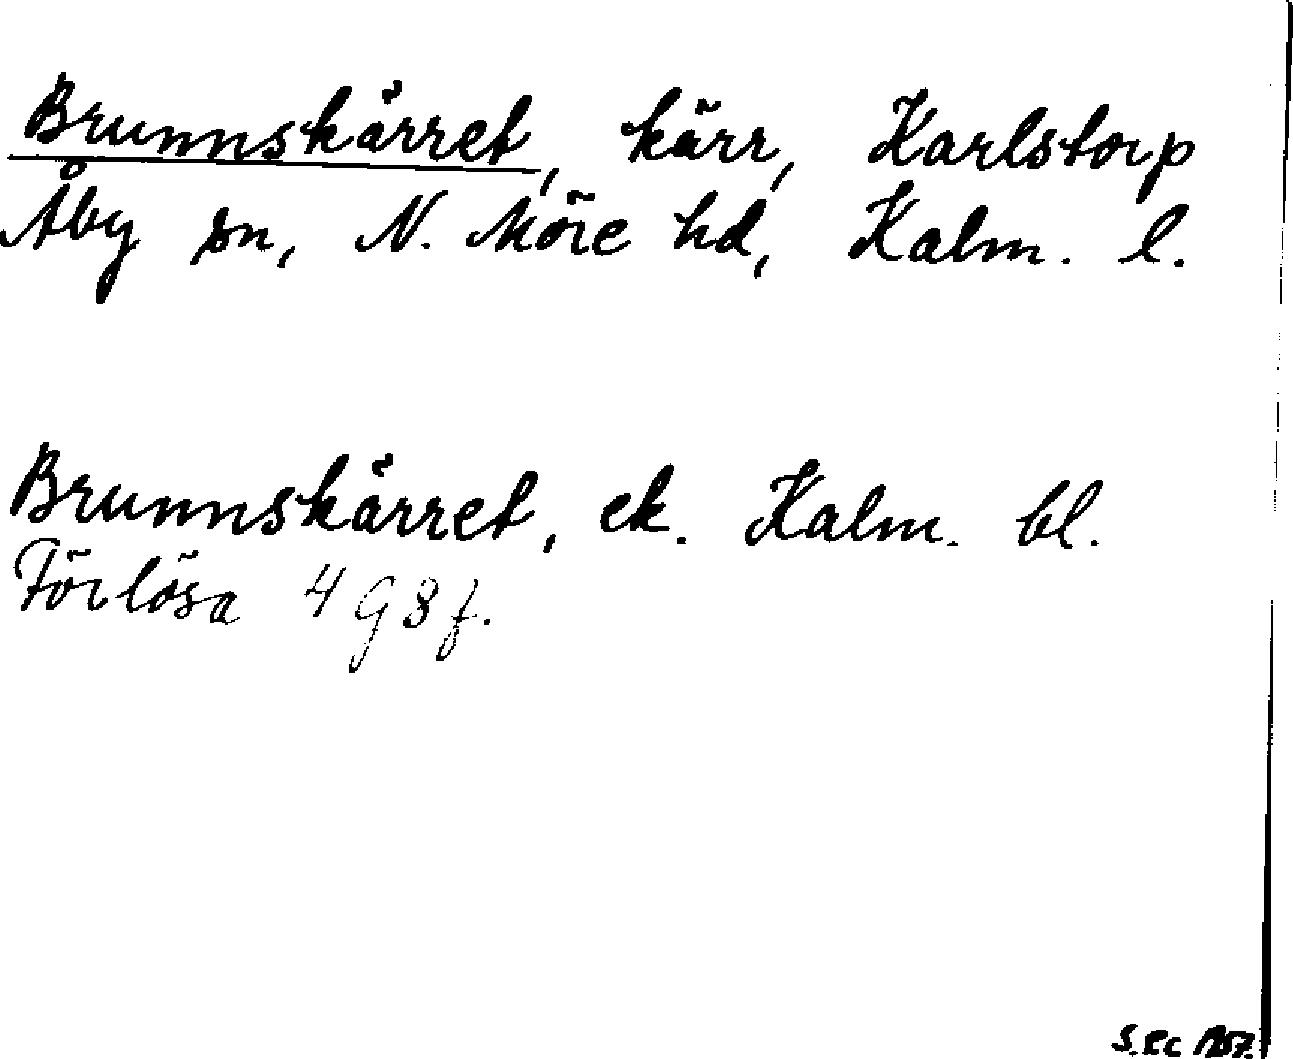 Brunnskärret, kärr, Karlstorp
Åby sn, N. Möre hd, Kalm. l.
Brunnskärret, ek. Kalm. bl.
Förlösa 4 g 8 f.